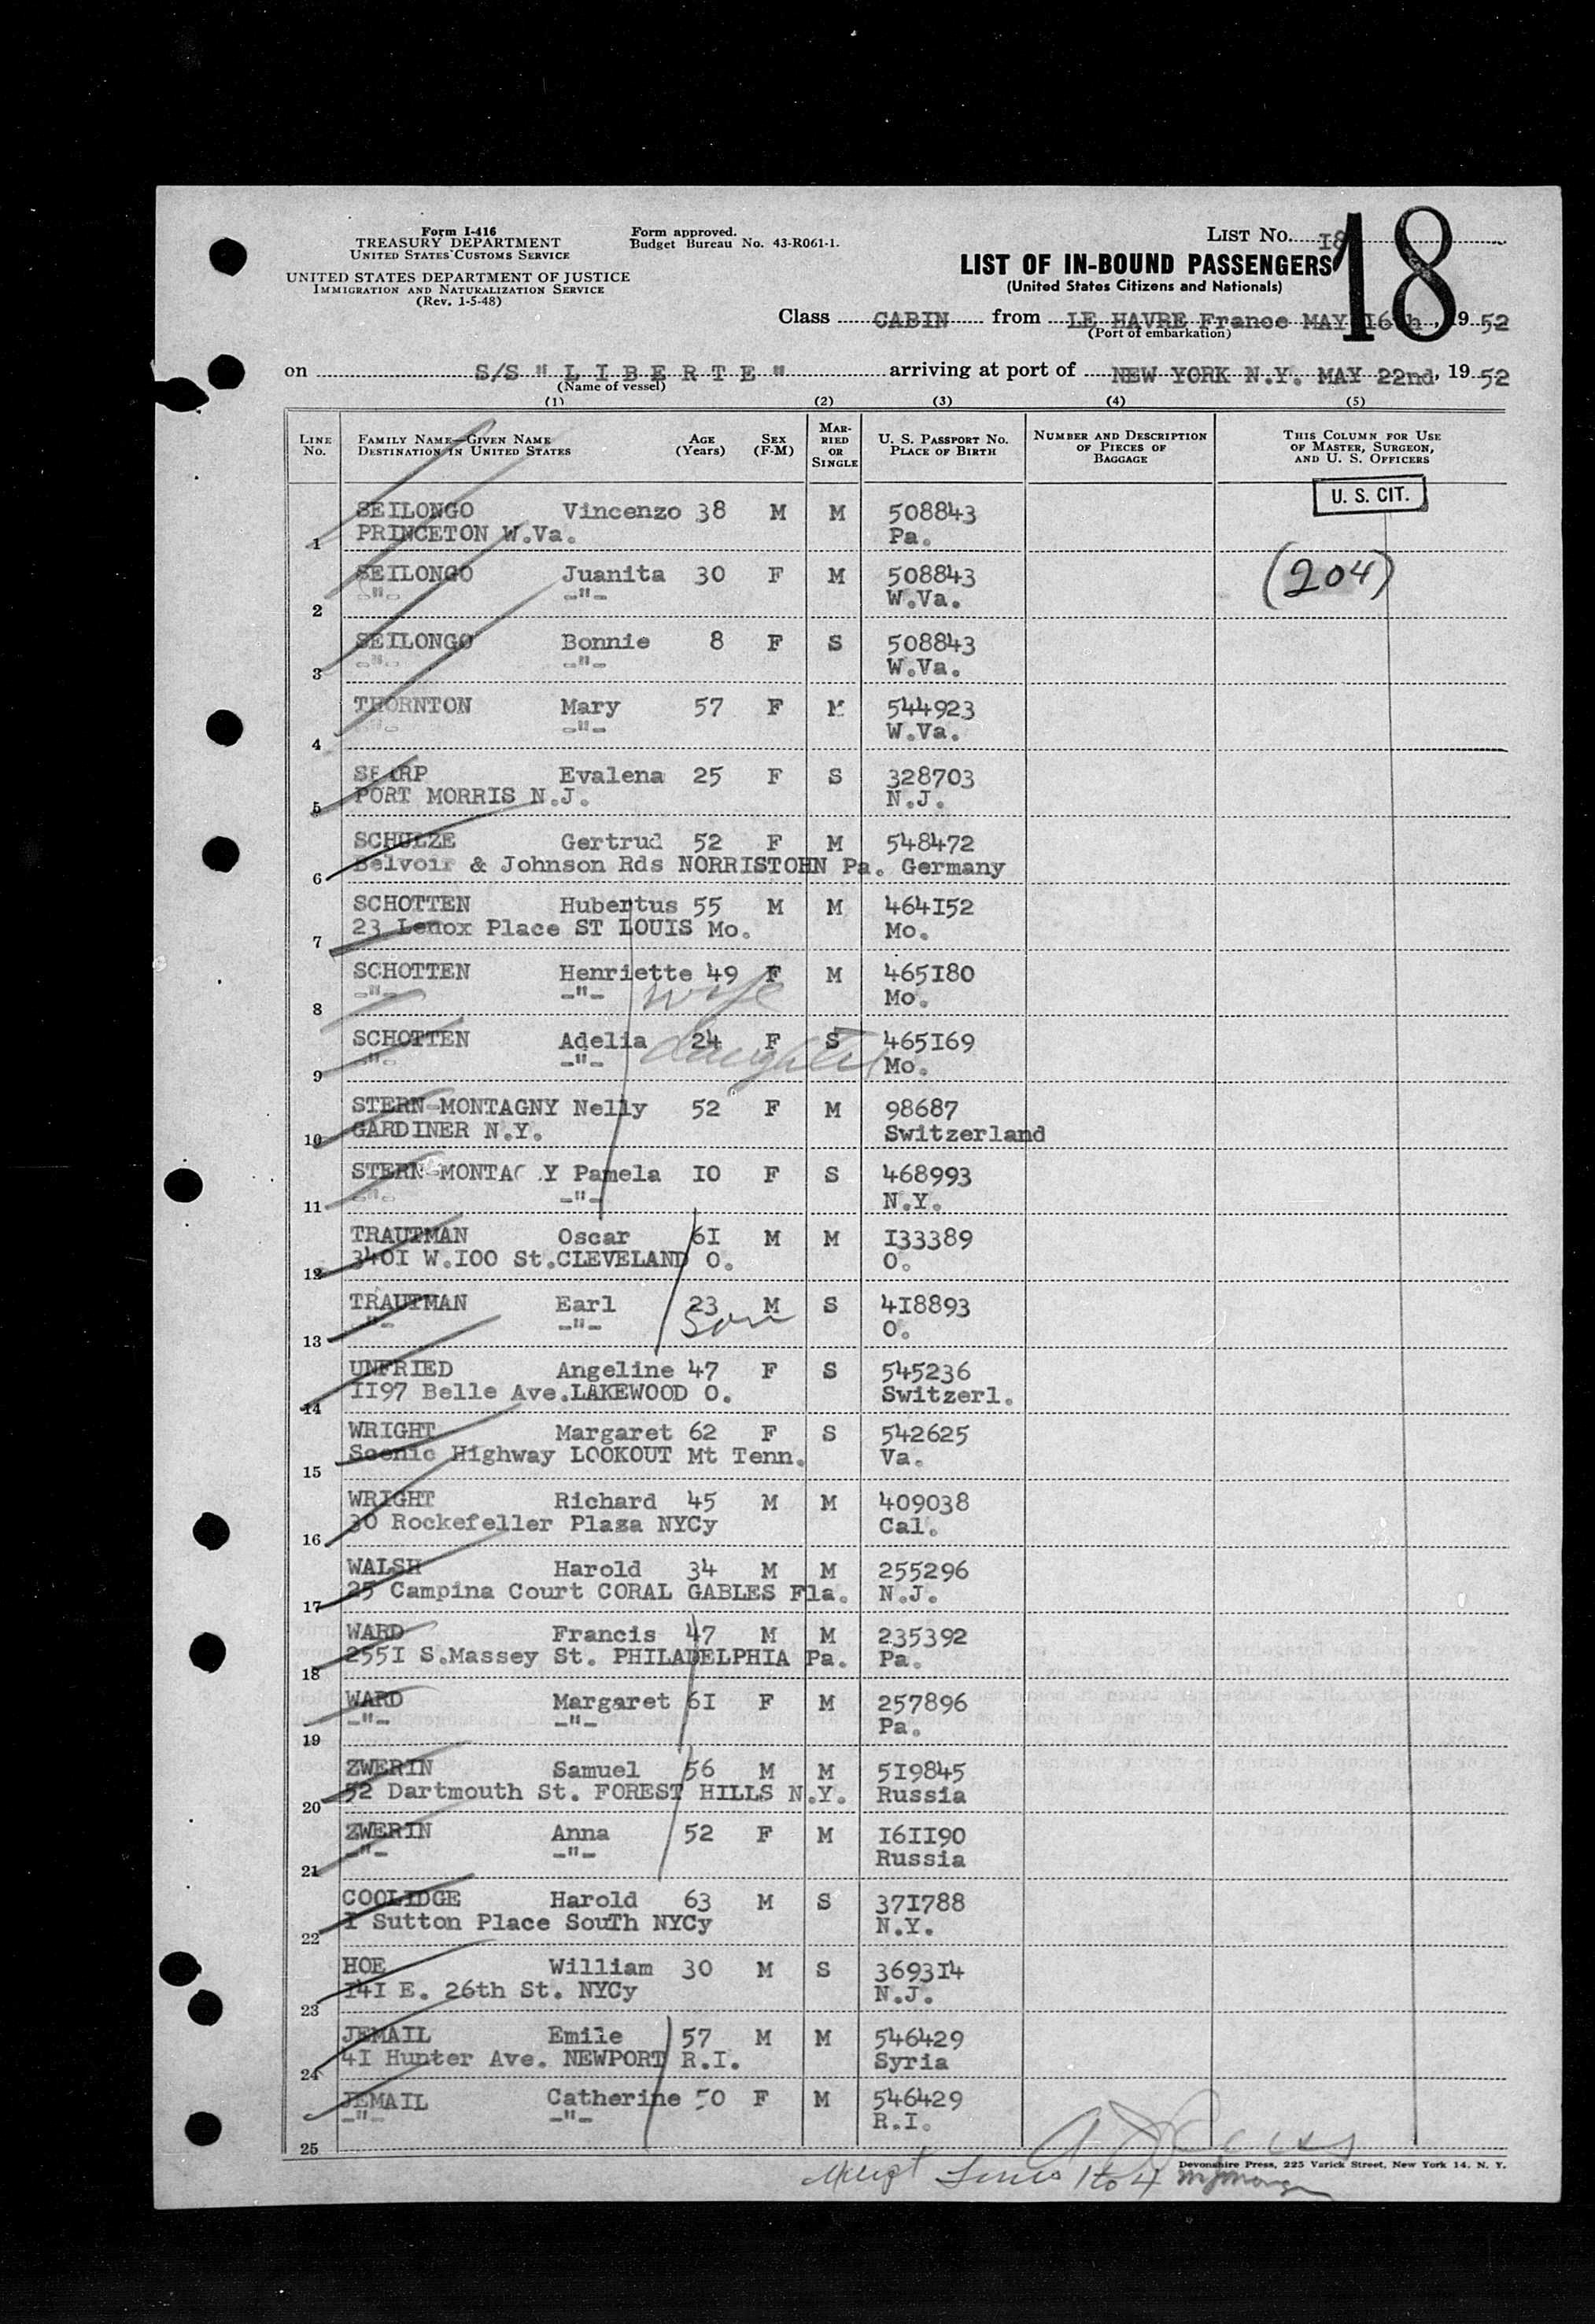 Form I-416
TREASURY DEPARTMENT
UNITED STATES CUSTOMS SERVICE
UNITED STATES DEPARTMENT OF JUSTICE
IMMIGRATION AND NATURALIZATION SERVICE
(Rev. 1-5-48)
Form approved.
Budget Bureau No. 43-R061-1.
LIST No. 18
18
LIST OF IN-BOUND PASSENGERS
(United States Citizens and Nationals)
Class CABIN from LE HAVRE France MAY 16th, 1952
(Port of embarkation)
on S/S " L I B E R T E " arriving at port of NEW YORK N.Y. MAY 22nd, 1952
(Name of vessel)
(1) (2) (3) (4) (5)
LINE No. FAMILY NAME—GIVEN NAME DESTINATION IN UNITED STATES AGE (Years) SEX (F-M) MARRIED OR SINGLE U. S. PASSPORT NO. PLACE OF BIRTH NUMBER AND DESCRIPTION OF PIECES OF BAGGAGE THIS COLUMN FOR USE OF MASTER, SURGEON, AND U. S. OFFICERS
U. S. CIT.
SEILONGO Vincenzo 38 M M 508843
1 PRINCETON W.Va. Pa.
(204)
SEILONGO Juanita 30 F M 508843
2 -"- -"- W.Va.
SEILONGO Bonnie 8 F S 508843
3 -"- -"- W.Va.
THORNTON Mary 57 F M 544923
4 -"- -"- W.Va.
Evalena 25 F S 328703
5 PORT MORRIS N.J. N.J.
SCHULZE Gertrud 52 F M 548472
6 Belvoir & Johnson Rds NORRISTOHN Pa. Germany
SCHOTTEN Hubertus 55 M M 464I52
7 23 Lenox Place ST LOUIS Mo. Mo.
SCHOTTEN Henriette 49 F M 465I80
8 -"- -"- wife Mo.
SCHOTTEN Adelia 24 F S 465I69
9 -"- -"- daughter Mo.
STERN-MONTAGNY Nelly 52 F M 98687
10 GARDINER N.Y. Switzerland
STERN-MONTAG Y Pamela IO F S 468993
11 -"- -"- N.Y.
TRAUTMAN Oscar 6I M M I33389
12 340I W.IOO St.CLEVELAND O. O.
TRAUTMAN Earl 23 M S 4I8893
13 -"- -"- Son O.
UNFRIED Angeline 47 F S 545236
14 II97 Belle Ave.LAKEWOOD O. Switzerl.
WRIGHT Margaret 62 F S 542625
15 Scenic Highway LOOKOUT Mt Tenn. Va.
WRIGHT Richard 45 M M 409038
16 30 Rockefeller Plaza NYCy Cal.
WALSH Harold 34 M M 255296
17 25 Campina Court CORAL GABLES Fla. N.J.
WARD Francis 47 M M 235392
18 255I S.Massey St. PHILADELPHIA Pa. Pa.
WARD Margaret 6I F M 257896
19 -"- -"- Pa.
ZWERIN Samuel 56 M M 5I9845
20 52 Dartmouth St. FOREST HILLS N.Y. Russia
ZWERIN Anna 52 F M I6II90
21 -"- -"- Russia
COOLIDGE Harold 63 M S 37I788
22 I Sutton Place SouTh NYCy N.Y.
HOE William 30 M S 3693I4
23 I4I E. 26th St. NYCy N.J.
JEMAIL Emile 57 M M 546429
24 4I Hunter Ave. NEWPORT R.I. Syria
JEMAIL Catherine 50 F M 546429
25 -"- -"- R.I.
Devonshire Press, 225 Varick Street, New York 14, N. Y.
Lines 1 to 4